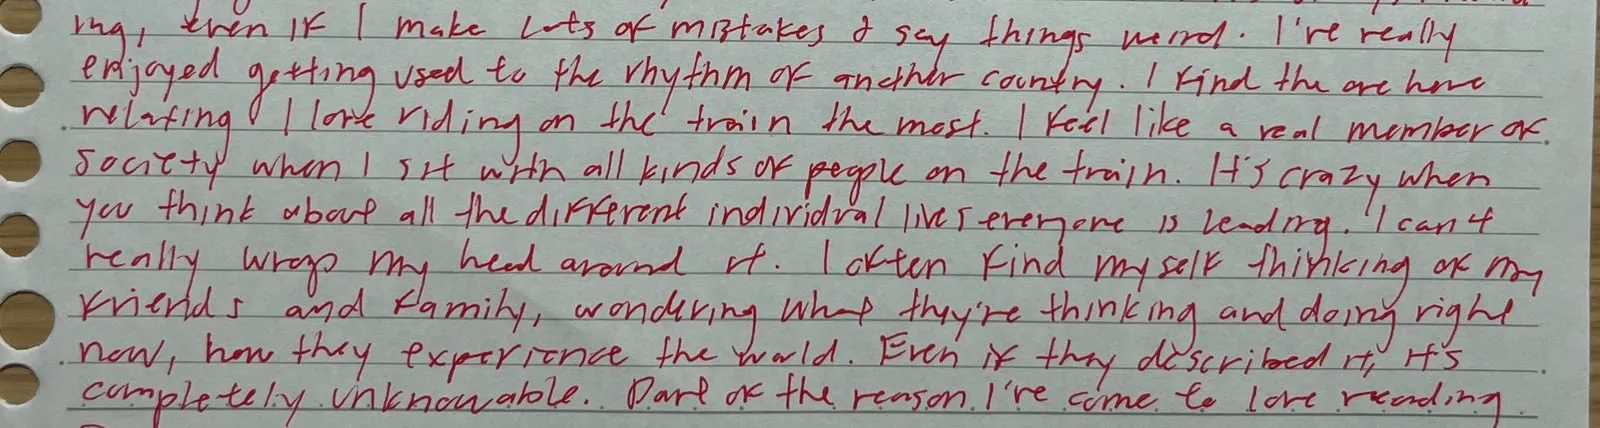 ing, even if I make lots of mistakes & say things weird. I've really
enjoyed getting used to the rhythm of another country. I find the one here
relaxing. I love riding on the train the most. I feel like a real member of
society when I sit with all kinds of people on the train. It's crazy when
you think about all the different individual lives everyone is leading. I can't
really wrap my head around it. I often find myself thinking of my
friends and family, wondering what they're thinking and doing right
now, how they experience the world. Even if they described it, it's
completely unknowable. Part of the reason I've come to love reading